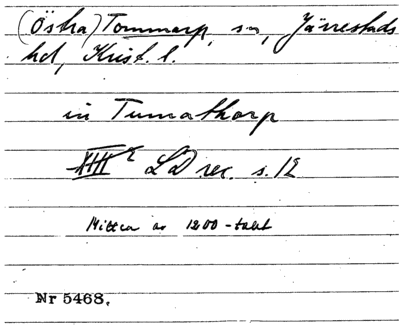 (Östra) Tommarp, sn, Järrestads
hd, Krist. l.
in Tumathorp
XIII² LD rec. s. 12
Mitten av 1200-talet
Nr 5468.